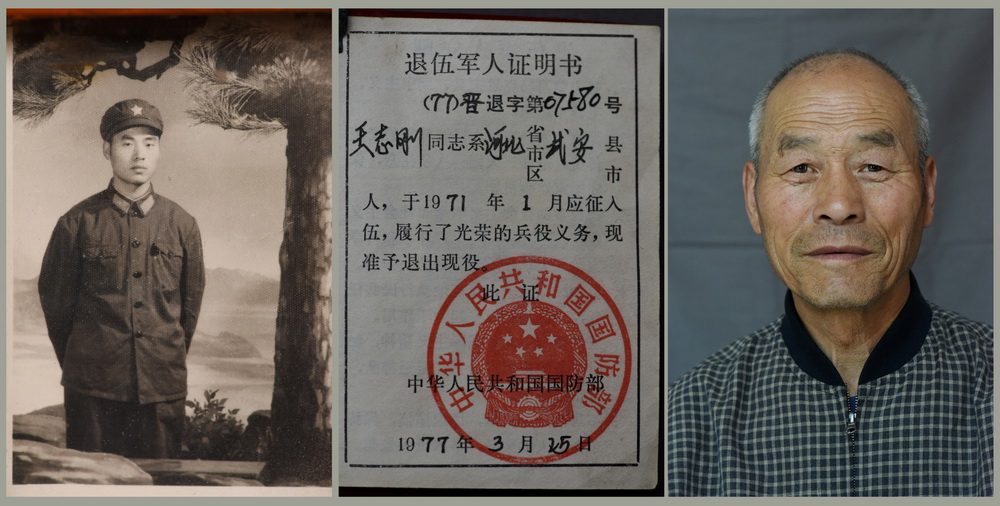 退伍军人证明书
(77)晋退字第07580号
王志刚同志系河北省市区武安县市
人，于1971年1月应征入
伍，履行了光荣的兵役义务，现
准予退出现役。
此证
中华人民共和国国防部
中华人民共和国国防部
1977年3月25日